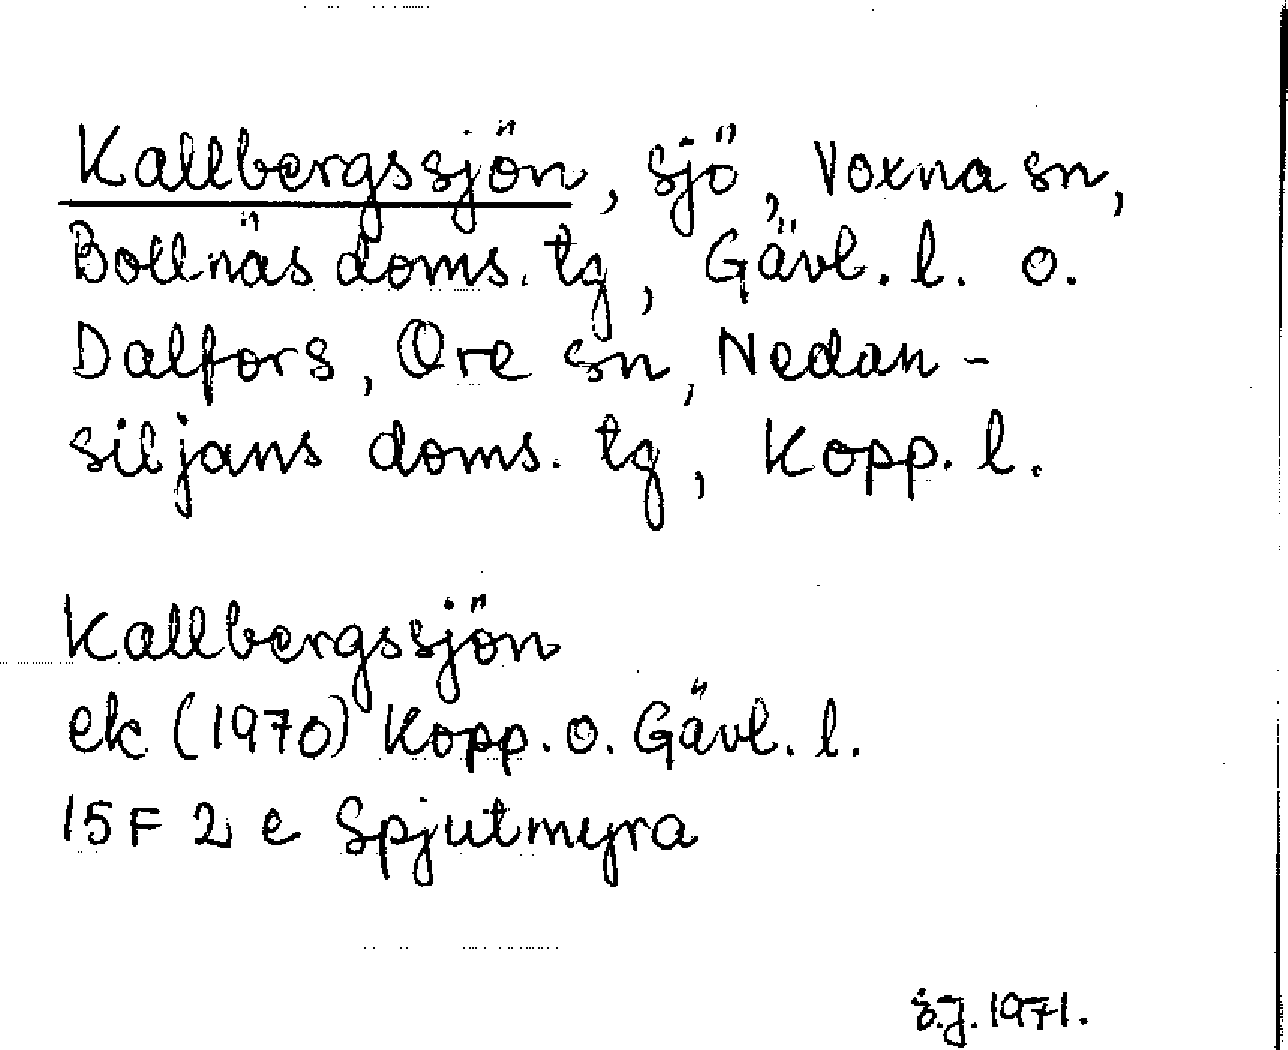 Kallbergssjön, sjö, Voxna sn,
Bollnäs doms. tg, Gävl. l. o.
Dalfors, Ore sn, Nedan-
siljans doms. tg, Kopp. l.
Kallbergssjön
ek (1970) Kopp. o. Gävl. l.
15F 2 e Spjutmyra
S.J. 1971.